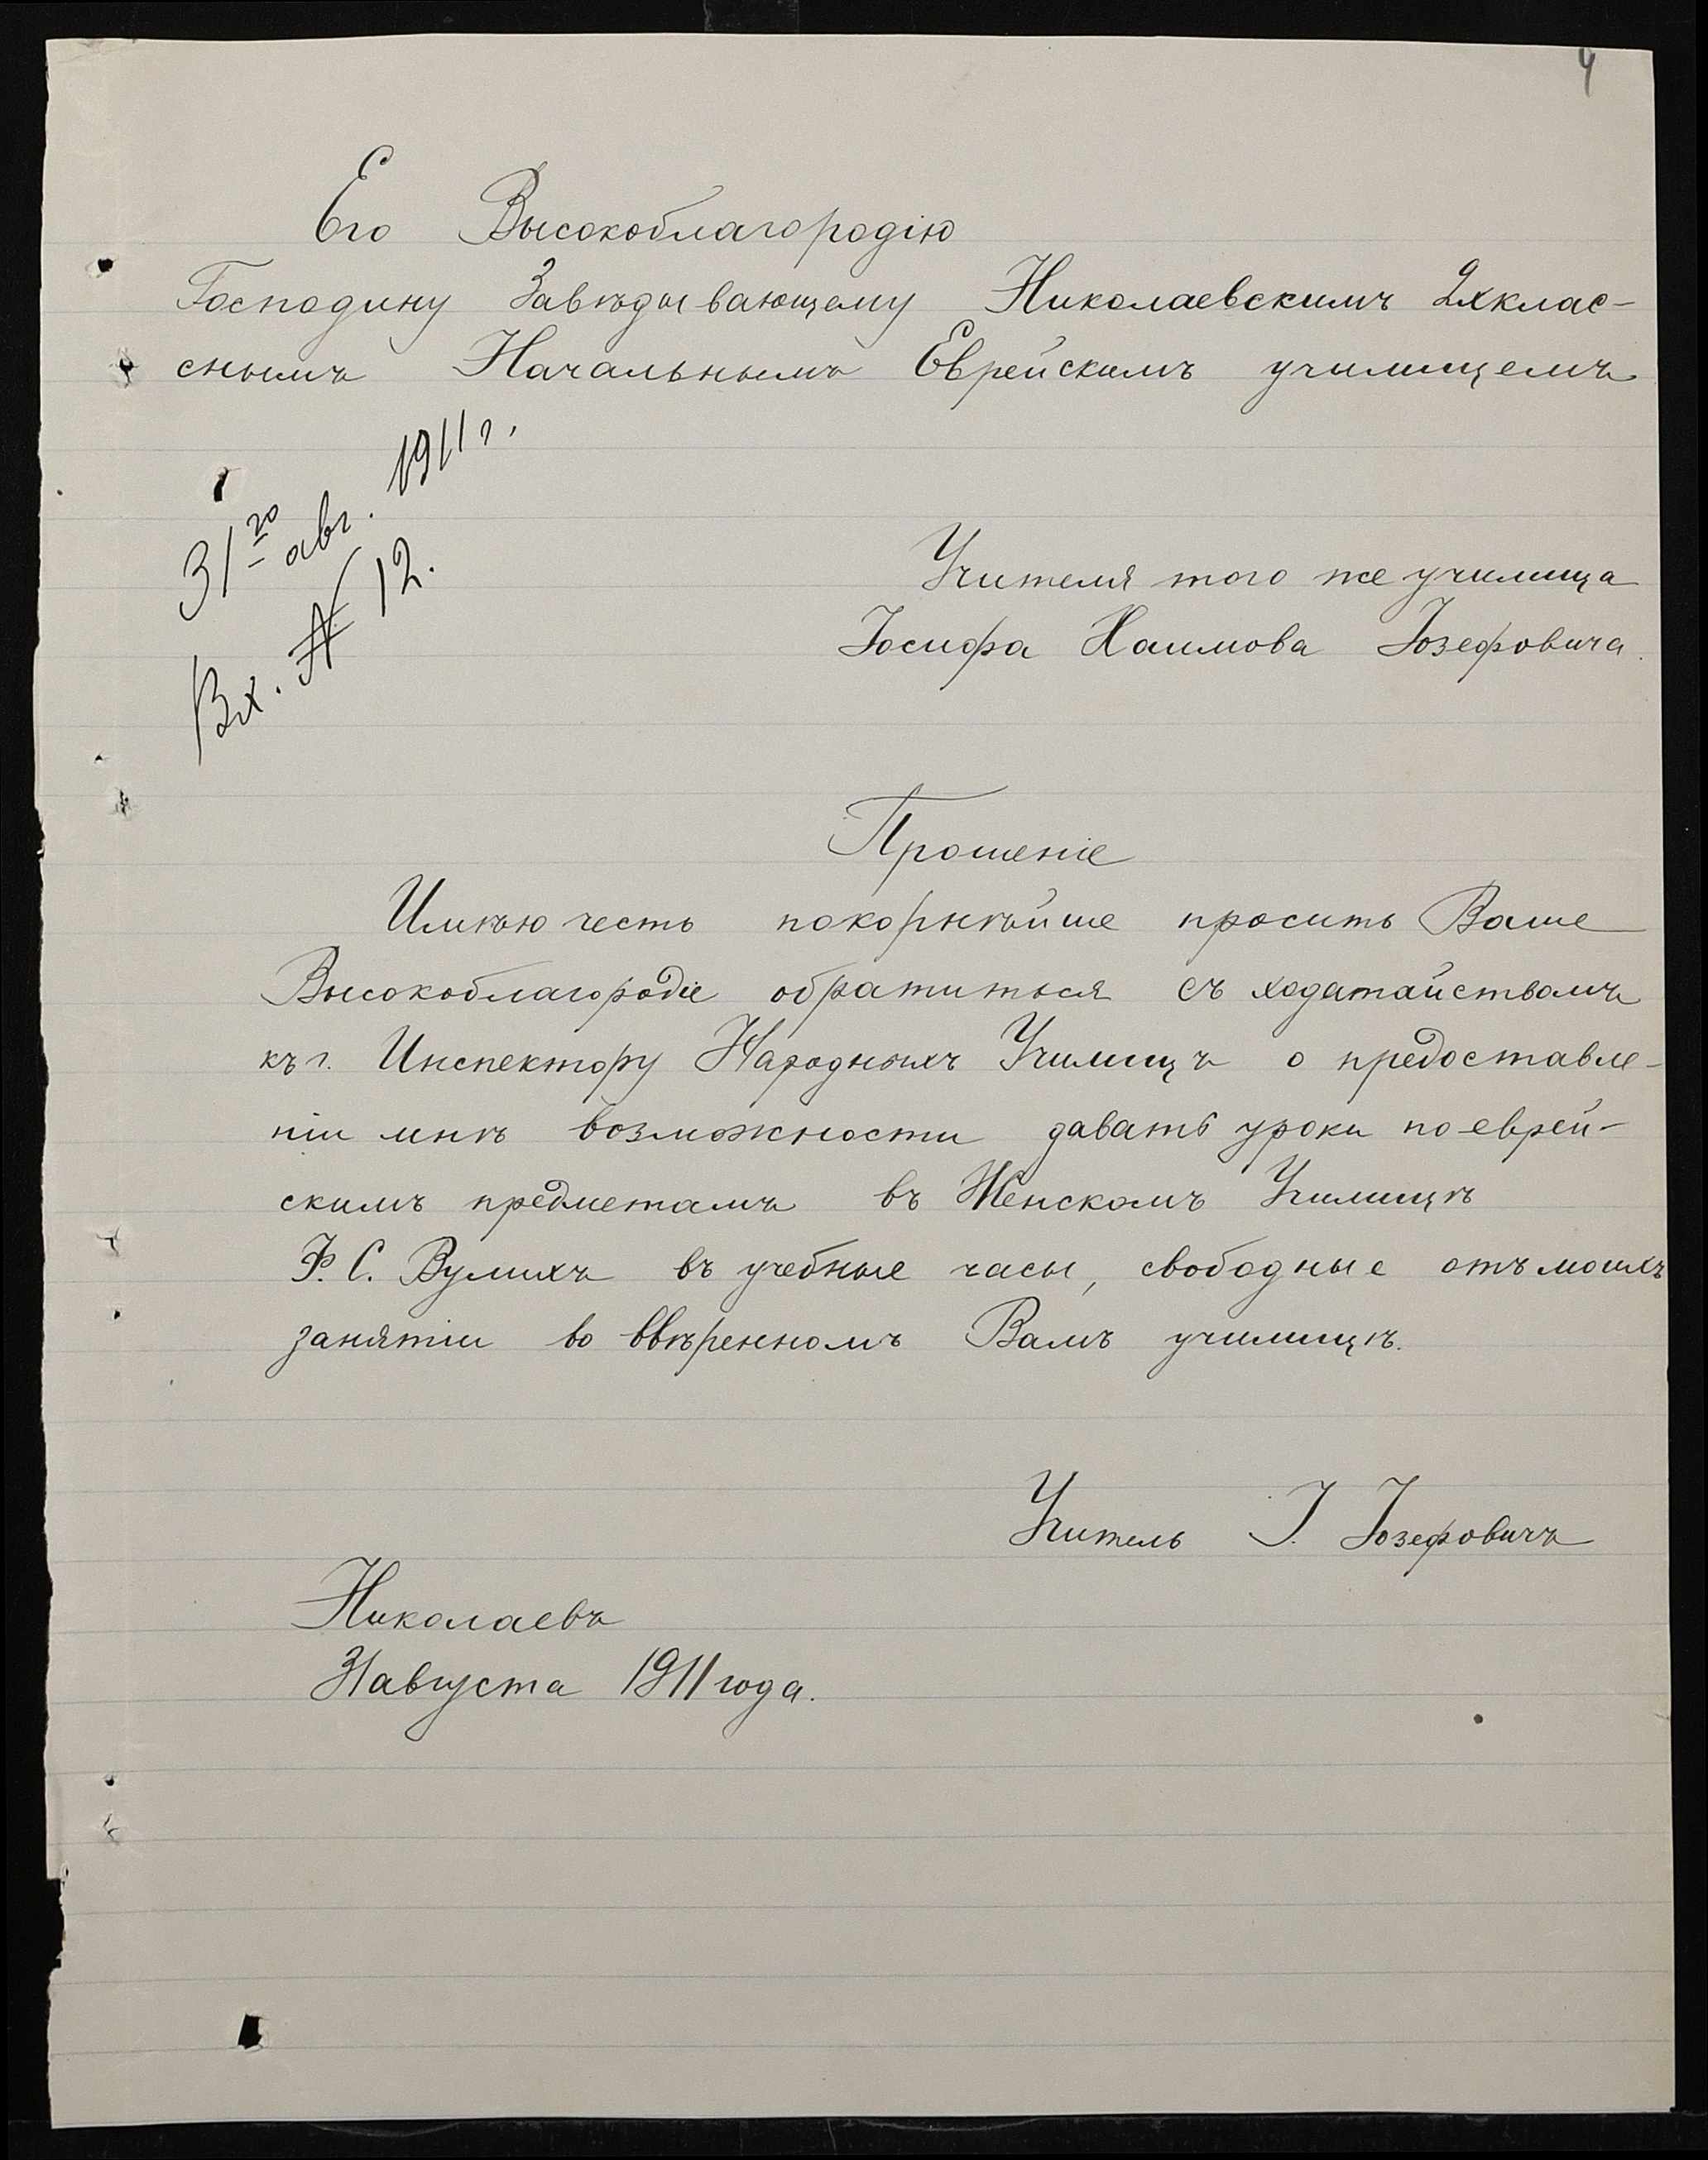 4
Его Высокоблагородію
Господину Завѣдывающему Николаевскимъ 2хклас-
снымъ Начальнымъ Еврейскимъ училищемъ
31го авг. 1911 г.
Вх. № 12.
Учителя того же училища
Іосифа Хаимова Іозефовича.
Прошеніе
Имѣю честь покорнѣйше просить Ваше
Высокоблагородіе обратиться съ ходатайствомъ
къ г. Инспектору Народныхъ Училищъ о предоставле-
ніи мнѣ возможности давать уроки по еврей-
скимъ предметамъ въ Женскомъ Училищѣ
Ф. С. Вулихъ въ учебные часы, свободные отъ моихъ
занятіи во ввѣренномъ Вамъ училищѣ.
Учитель І. Іозефовичъ
Николаевъ
31 августа 1911 года.